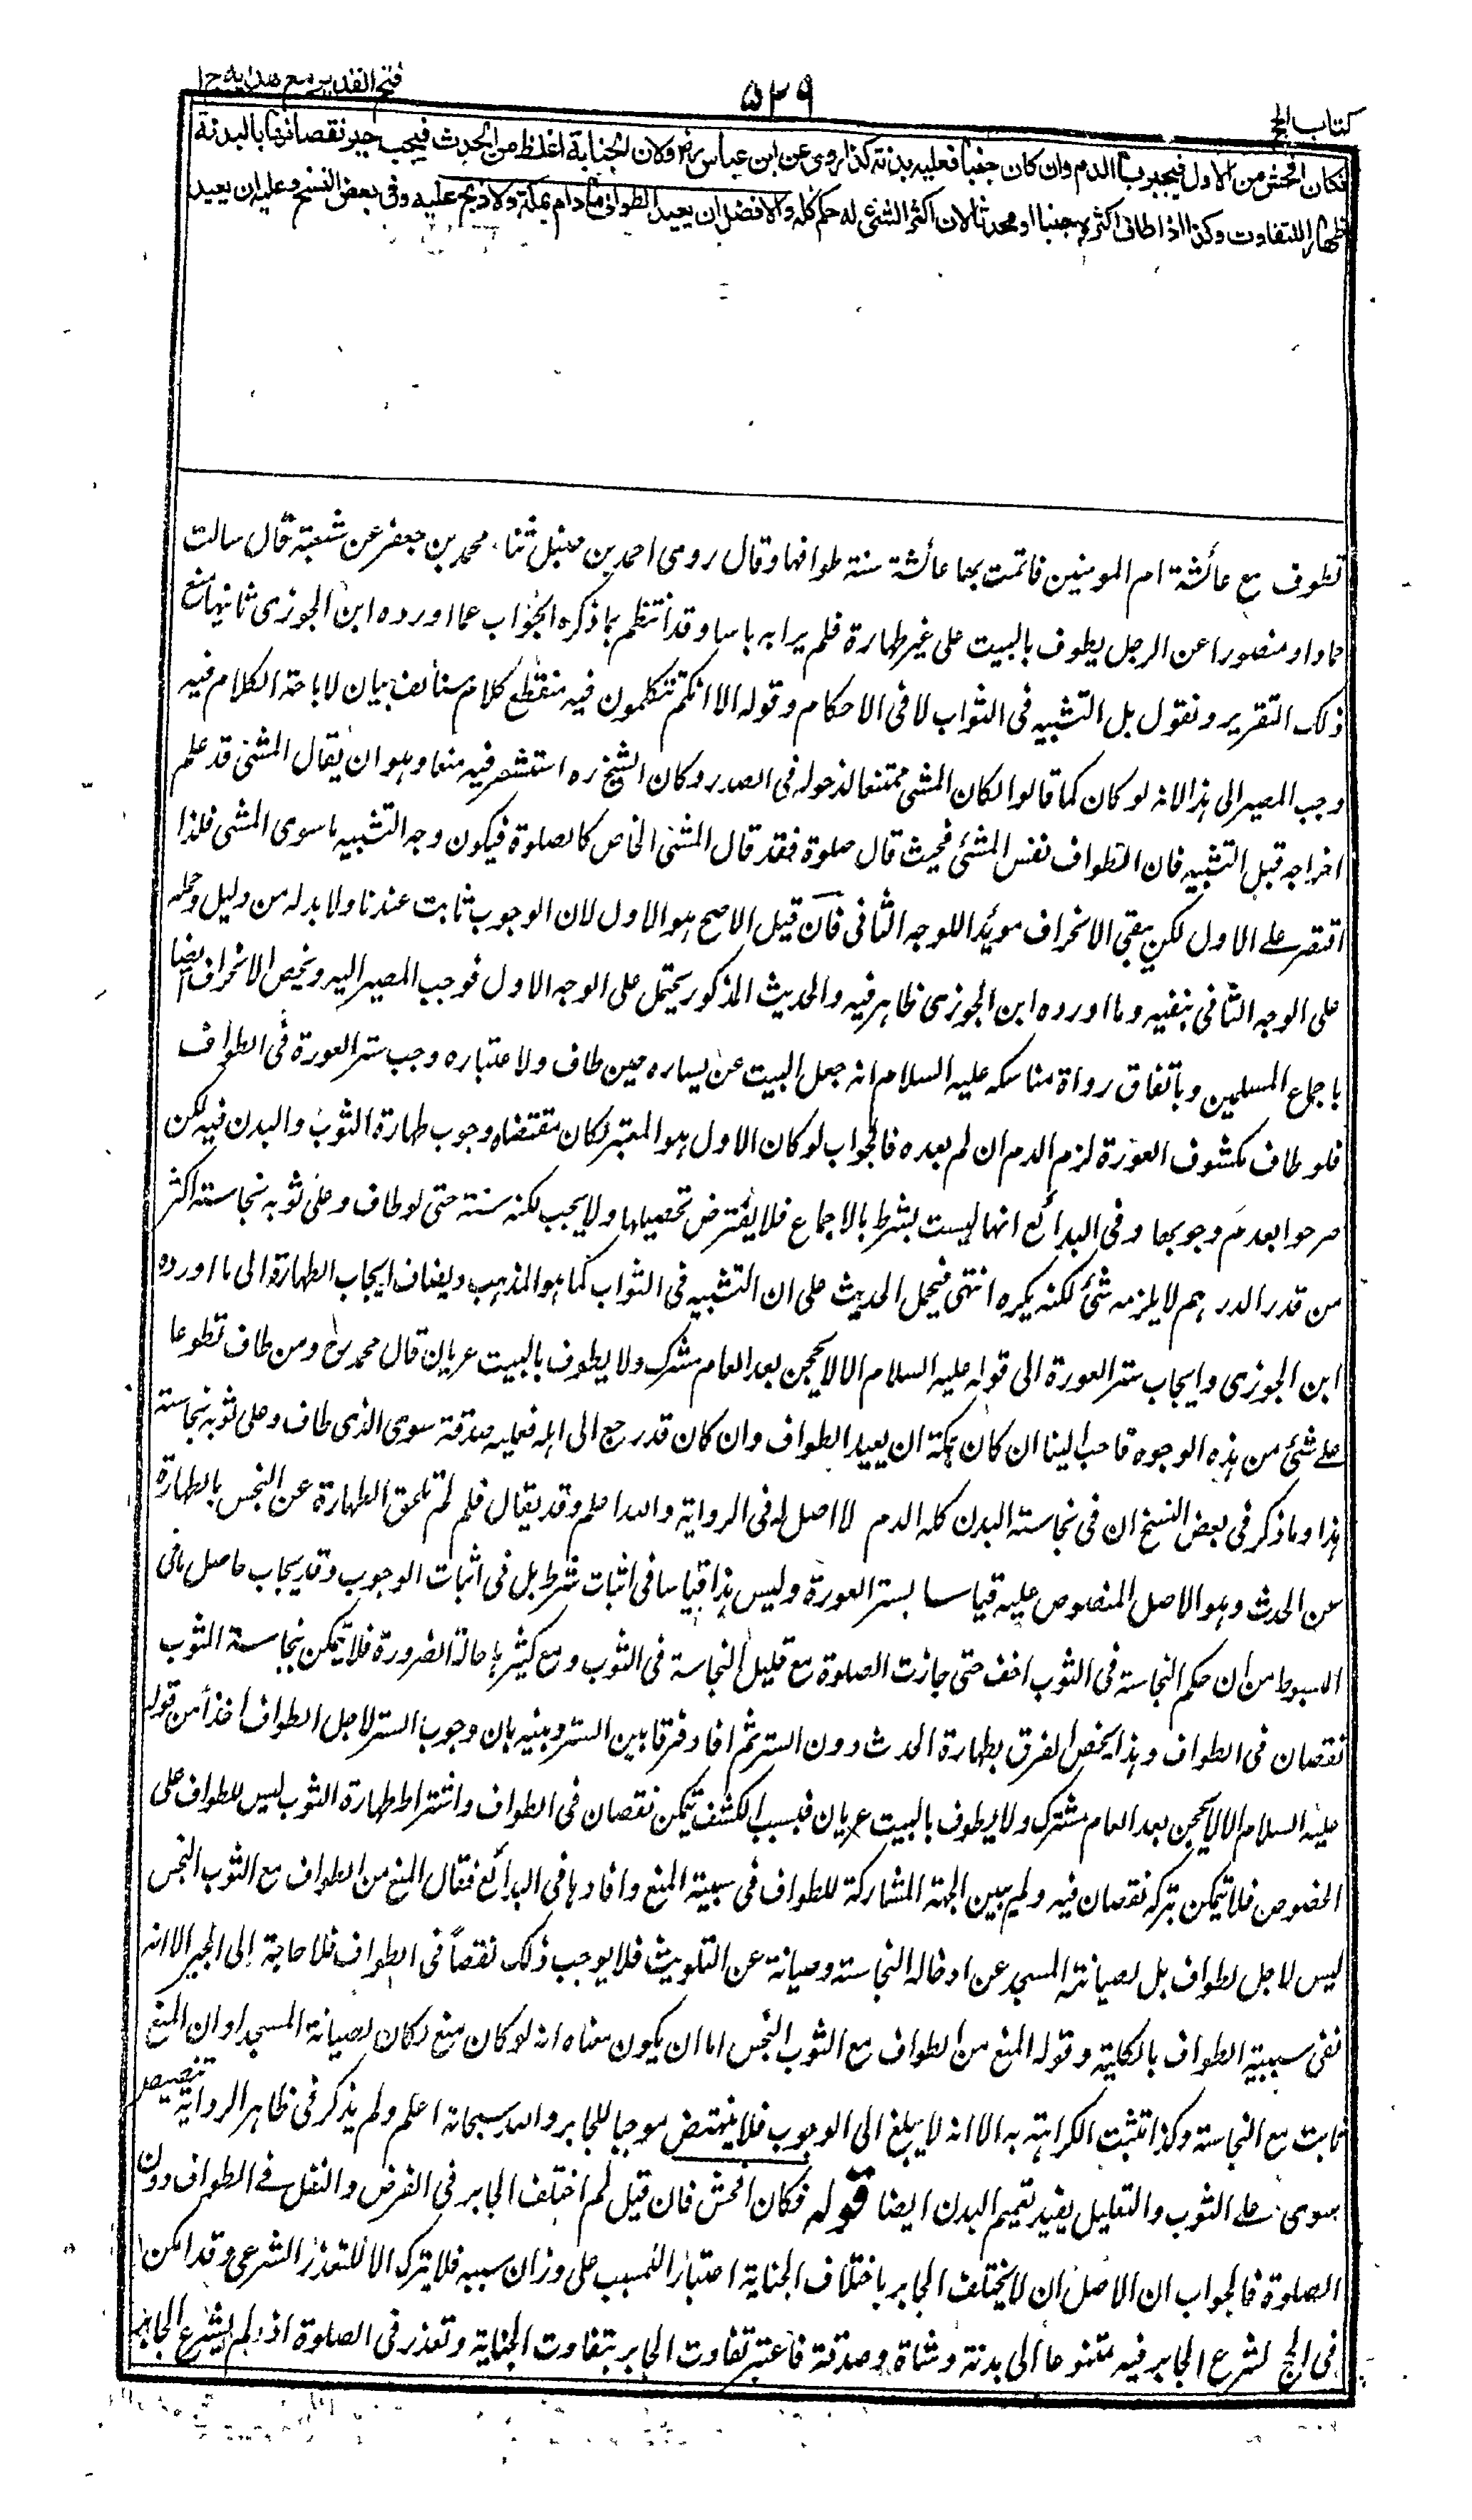 كتاب الحج
۵۳۹
فتح القدير مع هدايه ج ا
فكان افحش من الاول فيجبر بالدم وان كان جنبا فعليه بدنة كذا روى عن ابن عباس رض ولان الجنابة اغلظ من الحدث فيجب جبر نقصانها بالبدنة
اظهارا للتفاوت وكذا اذا طاف اكثره جنبا او محدثا لان اكثر الشئ له حكم كله والافضل ان يعيد الطواف ما دام بمكة ولا ذبح عليه وفى بعض النسخ وعليه ان يعيد
تطوف مع عائشة ام المومنين فاتمت بها عائشة سنة طوافها وقال روى احمد بن حنبل ثنا محمد بن جعفر عن شعبة قال سالت
حمادا و منصورا عن الرجل يطوف بالبيت على غير طهارة فلم يرا به باسا وقد انتظم بما ذكره الجواب عما اورده ابن الجوزى ثانيها منع
ذلك التقرير ونقول بل التشبيه فى الثواب لا فى الاحكام وقوله الا انكم تتكلمون فيه منقطع كلام مستانف بيان لاباحة الكلام فيه
وجب المصير الى هذا لانه لو كان كما قالوا لكان المشى ممتنعا لدخوله فى الصدر وكان الشيخ ره استشعر فيه منعا وهو ان يقال المشى قد علم
اخراجه قبل التشبيه فان الطواف نفس المشى فحيث قال صلوة فقد قال المشى الخاص كالصلوة فيكون وجه التشبيه ما سوى المشى فلذا
اقتصر على الاول لكن بقى الانحراف مويدا للوجه الثانى فان قيل الاصح هو الاول لان الوجوب ثابت عندنا ولا بد له من دليل وحمله
على الوجه الثانى ينفيه وما اورده ابن الجوزى ظاهر فيه والحديث المذكور يحتمل على الوجه الاول فوجب المصير اليه ويخص الانحراف ايضا
باجماع المسلمين وباتفاق رواة مناسكه عليه السلام انه جعل البيت عن يساره حين طاف ولاعتباره وجب ستر العورة فى الطواف
فلو طاف مكشوف العورة لزم الدم ان لم يعده فالجواب لو كان الاول هو المعتبر لكان مقتضاه وجوب طهارة الثوب والبدن فيه لكن
صرحوا بعدم وجوبها وفى البدائع انها ليست بشرط بالاجماع فلا يفترض تحصيلها ولا يجب لكنه سنة حتى لو طاف وعلى ثوبه نجاسة اكثر
من قدر الدرهم لا يلزمه شئ لكنه يكره انتهى فيحمل الحديث على ان التشبيه فى الثواب كما هو المذهب ويضاف ايجاب الطهارة الى ما اورده
ابن الجوزى وايجاب ستر العورة الى قوله عليه السلام الا لا يحجن بعد العام مشرك ولا يطوف بالبيت عريان قال محمد رح ومن طاف تطوعا
على شئ من هذه الوجوه فاحب الينا ان كان بمكة ان يعيد الطواف وان كان قد رجع الى اهله فعليه صدقة سوى الذى طاف وعلى ثوبه نجاسة
هذا وما ذكر فى بعض النسخ ان فى نجاسة البدن كله الدم لا اصل له فى الرواية والله اعلم وقد يقال فلم لم تلحق الطهارة عن النجس بالطهارة
عن الحدث وهو الاصل المنصوص عليه قياسا بستر العورة وليس هذا قياسا فى اثبات شرط بل فى اثبات الوجوب وقد يجاب حاصل ما فى
المبسوط من ان حكم النجاسة فى الثوب اخف حتى جازت الصلوة مع قليل النجاسة فى الثوب ومع كثيرها حالة الضرورة فلا يتمكن بنجاسة الثوب
نقصان فى الطواف وهذا يخص الفرق بطهارة الحدث دون الستر ثم افاد فرقا بين الستر وبينه بان وجوب الستر لاجل الطواف اخذا من قوله
عليه السلام الا لا يحجن بعد العام مشرك ولا يطوف بالبيت عريان فبسبب الكشف يتمكن نقصان فى الطواف واشتراط طهارة الثوب ليس للطواف على
الخصوص فلا يتمكن بتركه نقصان فيه ولم يبين الجهة المشاركة للطواف فى سببية المنع وافادها فى البدائع فقال المنع من الطواف مع الثوب النجس
ليس لاجل الطواف بل لصيانة المسجد عن ادخاله النجاسة وصيانة عن التلويث فلا يوجب ذلك نقصاً فى الطواف فلا حاجة إلى الجبر الا انه
نفى سببية الطواف بالكلية وقوله المنع من الطواف مع الثوب النجس اما ان يكون معناه انه لو كان منع لكان لصيانة المسجد او ان المنع
ثابت مع النجاسة وكذا تثبت الكراهة به الا انه لا يبلغ الى الوجوب فلا ينتهض موجبا للجابر والله سبحانه اعلم ولم يذكر فى ظاهر الرواية تنصيص
سوى على الثوب والتعليل يفيد تعميم البدن ايضا قوله فكان افحش فان قيل لم اختلف الجابر فى الفرض والنفل فى الطواف دون
الصلوة فالجواب ان الاصل ان لا يختلف الجابر باختلاف الجناية اعتبارا للمسبب على وزان سببه فلا يترك الا للتعذر الشرعى وقد امكن
فى الحج لشرع الجابر فيه متنوعا الى بدنة وشاة وصدقة فاعتبر تفاوت الجابر بتفاوت الجناية وتعذر فى الصلوة اذ لم يشرع الجابر